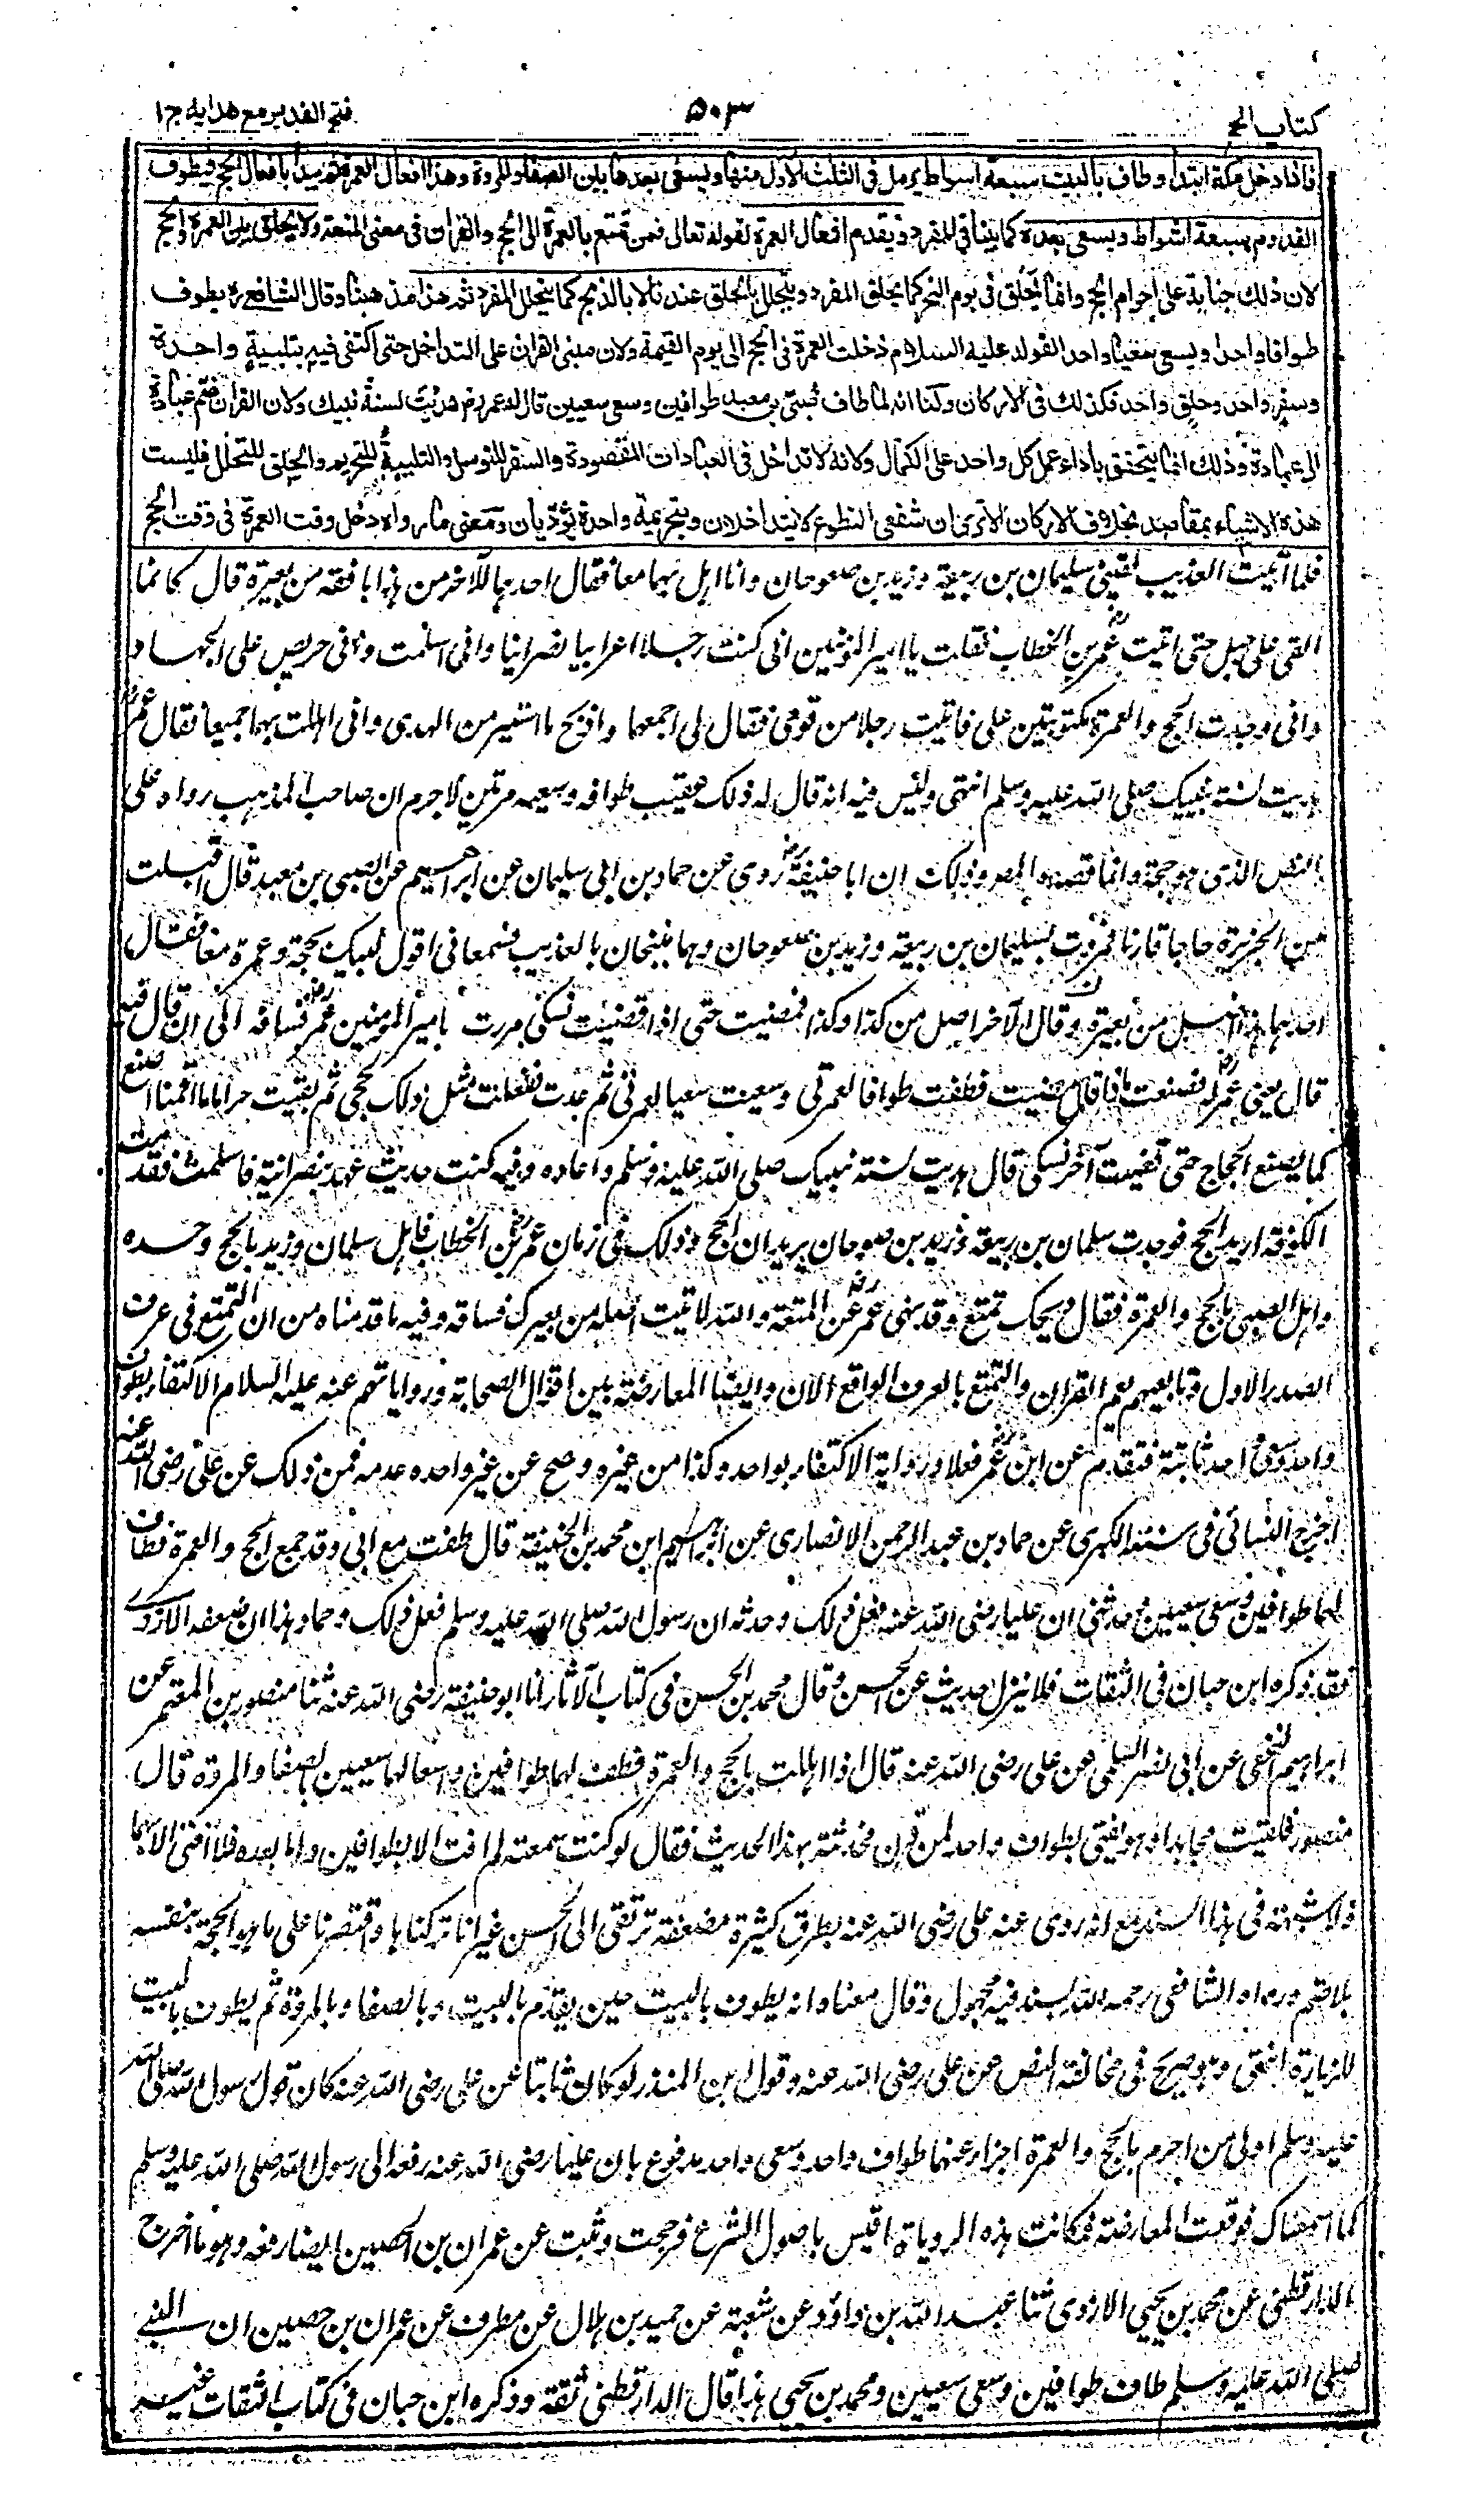 كتاب الحج
۵۰۳
فتح القدير مع هدايه ج۱
فاذا دخل مكة ابتدأ وطاف بالبيت سبعة اشواط يرمل في الثلث الاول منها ويسعى بعدها بين الصفا والمروة وهذا افعال العمرة ثم يبدأ بافعال الحج فيطوف
القدوم سبعة اشواط ويسعى بعده كما بينا في المفرد ويقدم افعال العمرة لقوله تعالى فمن تمتع بالعمرة الى الحج والقران في معنى المتعة ولا يحلق بين العمرة والحج
لان ذلك جناية على احرام الحج وانما يحلق في يوم النحر كما يحلق المفرد ويتحلل بالحلق عندنا لا بالذبح كما يتحلل المفرد ثم هذا مذهبنا وقال الشافعي ره يطوف
طوافا واحدا ويسعى سعيا واحدا لقوله عليه السلام دخلت العمرة في الحج الى يوم القيمة ولان مبنى القران على التداخل حتى اكتفى فيه بتلبية واحدة
وسفر واحد وحلق واحد فكذلك في الاركان ولنا انه لما طاف صبي بن معبد طوافين وسعى سعيين قال له عمر رض هديت لسنة نبيك ولان القران ضم عبادة
الى عبادة وذلك انما يتحقق باداء عمل كل واحد على الكمال ولانه لا تداخل في العبادات المقصودة والسفر للتوسل والتلبية للتحريم والحلق للتحلل فليست
هذه الاشياء بمقاصد بخلاف الاركان الا ترى ان شفعي التطوع لا يتداخلان وبتحريمة واحدة يؤديان ومعنى ما رواه دخل وقت العمرة في وقت الحج
فلما اتيت العذيب لقيني سليمان بن ربيعة وزيد بن صوحان وانا اهل بهما معا فقال احدهما للآخر من هذا بافقه من بعيره قال كانما
القي علي جبل حتى اتيت عمر بن الخطاب فقلت يا امير المؤمنين اني كنت رجلا اعرابيا نصرانيا واني اسلمت واني حريص على الجهاد
واني وجدت الحج والعمرة مكتوبتين علي فاتيت رجلا من قومي فقال لي اجمعهما واذبح ما استيسر من الهدى واني اهللت بهما جميعا فقال عمر رض
هديت لسنة نبيك صلى الله عليه وسلم انتهى وليس فيه انه قال له ذلك عقيب طوافه وسعيه مرتين لا جرم ان صاحب المذهب رواه على
النص الذي هو حجة وانما قصره المصنف وذلك ان ابا حنيفة رض روى عن حماد بن ابي سليمان عن ابراهيم عن الصبي بن معبد قال اقبلت
من الجزيرة حاجا قارنا فمررت بسليمان بن ربيعة وزيد بن صوحان وهما منيخان بالعذيب فسمعاني اقول لبيك بحجة وعمرة معا فقال
احدهما هذا اضل من بعيره وقال الآخر اضل من كذا وكذا فمضيت حتى اذا قضيت نسكي مررت بامير المؤمنين عمر رض فساقه الى ان قال فيه
قال يعني عمر له فصنعت ماذا قال مضيت فطفت طوافا لعمرتي وسعيت سعيا لعمرتي ثم عدت ففعلت مثل ذلك لحجي ثم بقيت حراما ما اقمنا اصنع
كما يصنع الحجاج حتى قضيت آخر نسكي قال هديت لسنة نبيك صلى الله عليه وسلم واعاده وفيه كنت حديث عهد بنصرانية فاسلمت فقدمت
الكوفة اريد الحج فوجدت سلمان بن ربيعة وزيد بن صوحان يريدان الحج وذلك في زمان عمر بن الخطاب فاهل سلمان وزيد بالحج وحده
واهل الصبي بالحج والعمرة فقال ويحك تمتع وقد نهى عمر رض عن المتعة والله لانت اضل من بعيرك فساقه وفيه ما قدمناه من ان التمتع في عرف
الصدر الاول وتابعيهم يعم القران والتمتع بالعرف الواقع الآن وايضا المعارضة بين اقوال الصحابة وروايا تهم عنه عليه السلام الاكتفاء بطواف
واحد وسعي واحد ثابتة فتقدم عن ابن عمر فعلا ورواية الاكتفاء بواحد وكذا من غيره وصح عن غير واحد عدمه فمن ذلك عن علي رضى الله عنه
اخرج النسائي في سننه الكبرى عن حماد بن عبد الرحمن الانصاري عن ابراهيم ابن محمد بن الحنفية قال طفت مع ابي وقد جمع الحج والعمرة فطاف
لهما طوافين وسعى سعيين وحدثني ان عليا رضى الله عنه فعل ذلك وحدثه ان رسول الله صلى الله عليه وسلم فعل ذلك وحماد هذا ان ضعفه الازدي
فقد ذكره ابن حبان في الثقات فلا ينزل حديثه عن الحسن وقال محمد بن الحسن في كتاب الآثار انا ابو حنيفة رضى الله عنه ثنا منصور بن المعتمر عن
ابراهيم النخعي عن ابي نصر السلمي عن علي رضى الله عنه قال اذا اهللت بالحج والعمرة فطف لهما طوافين واسعا لهما سعيين بالصفا والمروة قال
منصور فلقيت مجاهدا وهو يفتي بطواف واحد لمن قرن فحدثته بهذا الحديث فقال لو كنت سمعته لم افت الا بطوافين واما بعده فلا افتي الا بهما
ولا شبهة في هذا السند مع انه روى عنه علي رضى الله عنه بطرق كثيرة مضعفة ترتقى الى الحسن غير انا تركناها واقتصرنا على ما هو الحجة بنفسه
بلا ضم ورواه الشافعي رحمه الله بسند فيه مجهول وقال معناه انه يطوف بالبيت حين يقدم بالبيت وبالصفا وبالمروة ثم يطوف بالبيت
للزيارة انتهى وهو صريح في مخالفة النص عن علي رضى الله عنه وقول ابن المنذر لو كان ثابتا عن علي رضى الله عنه كان قول رسول الله صلى الله
عليه وسلم اولى من احرم بالحج والعمرة اجزاء عنهما طواف واحد وسعى واحد مدفوع بان عليا رضى الله عنه رفعه الى رسول الله صلى الله عليه وسلم
كما اسمعناك فوقعت المعارضة فكانت هذه الرواية اقيس باصول الشرع فرجحت وثبت عن عمران بن الحصين ايضا رفعه وهو ما اخرج
الدارقطني عن محمد بن يحيى الازدي ثنا عبد الله بن داؤد عن شعبة عن حميد بن هلال عن مطرف عن عمران بن حصين ان النبي
صلى الله عليه وسلم طاف طوافين وسعى سعيين ومحمد بن يحيى هذا قال الدارقطني ثقة وذكره ابن حبان في كتاب الثقات غير